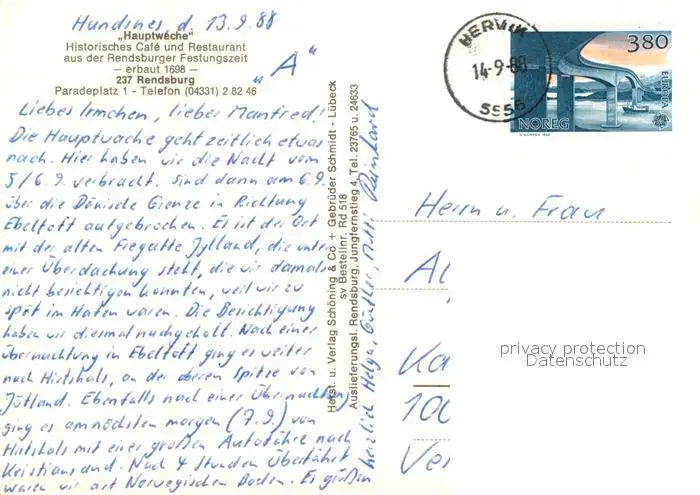 Hundsnes d. 13.9.88
„Hauptwache"
Historisches Café und Restaurant
aus der Rendsburger Festungszeit
— erbaut 1698 —
237 Rendsburg
Paradeplatz 1 - Telefon (04331) 2 82 46
„A"
Liebes Irmchen, lieber Manfred!
Die Hauptwache geht zeitlich etwas
nach. Hier haben wir die Nacht vom
5/6.9. verbracht. Sind dann am 6.9.
über die Dänische Grenze in Richtung
Ebeltoft aufgebrochen. Es ist der Ort
mit der alten Fregatte Jylland, die unter
einer Überdachung steht, die wir damals
nicht besichtigen konnten, weil wir zu
spät im Hafen waren. Die Besichtigung
haben wir diesmal nachgeholt. Nach einer
Übernachtung in Ebeltoft ging es weiter
nach Hirtshals, an der oberen Spitze von
Jütland. Ebenfalls nach einer Übernachtung
ging es am nächsten morgen (7.9.) von
Hirtshals mit einer großen Autofähre nach
Kristiansand. Nach 4 Stunden Überfahrt
waren wir auf Norwegischen Boden. Es grüßen
herzlich Helga, Günther, Reinhard
Herst. u. Verlag Schöning & Co + Gebrüder Schmidt - Lübeck
sv Bestellnr. Rd 518
Auslieferungsl. Rendsburg, Jungfernstieg 4, Tel. 23765 u. 24633
HERVIK
14-9-88
5566
380
EUROPA
NOREG
Herrn u. Frau
Al
Ka
100
Ve
privacy protection
Datenschutz